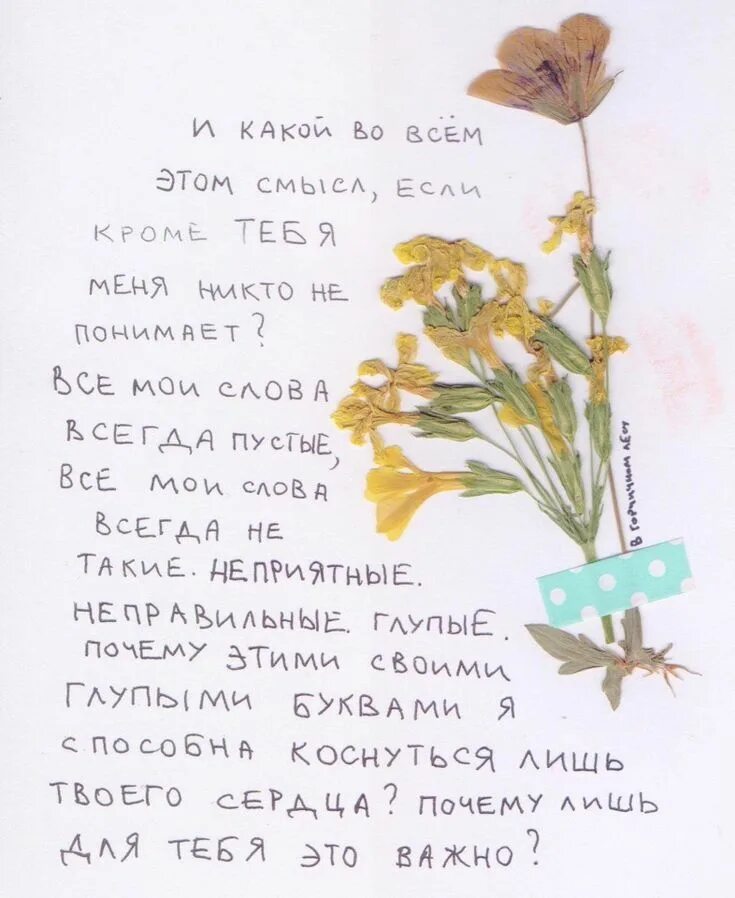 И КАКОЙ ВО ВСЁМ
ЭТОМ СМЫСЛ, ЕСЛИ
КРОМЕ ТЕБЯ
МЕНЯ НИКТО НЕ
ПОНИМАЕТ?
ВСЕ МОИ СЛОВА
ВСЕГДА ПУСТЫЕ,
ВСЕ МОИ СЛОВА
ВСЕГДА НЕ
ТАКИЕ. НЕПРИЯТНЫЕ.
НЕПРАВИЛЬНЫЕ. ГЛУПЫЕ.
ПОЧЕМУ ЭТИМИ СВОИМИ
ГЛУПЫМИ БУКВАМИ Я
СПОСОБНА КОСНУТЬСЯ ЛИШЬ
ТВОЕГО СЕРДЦА? ПОЧЕМУ ЛИШЬ
ДЛЯ ТЕБЯ ЭТО ВАЖНО?
В ГОРЧИЧНОМ ЛЕСУ